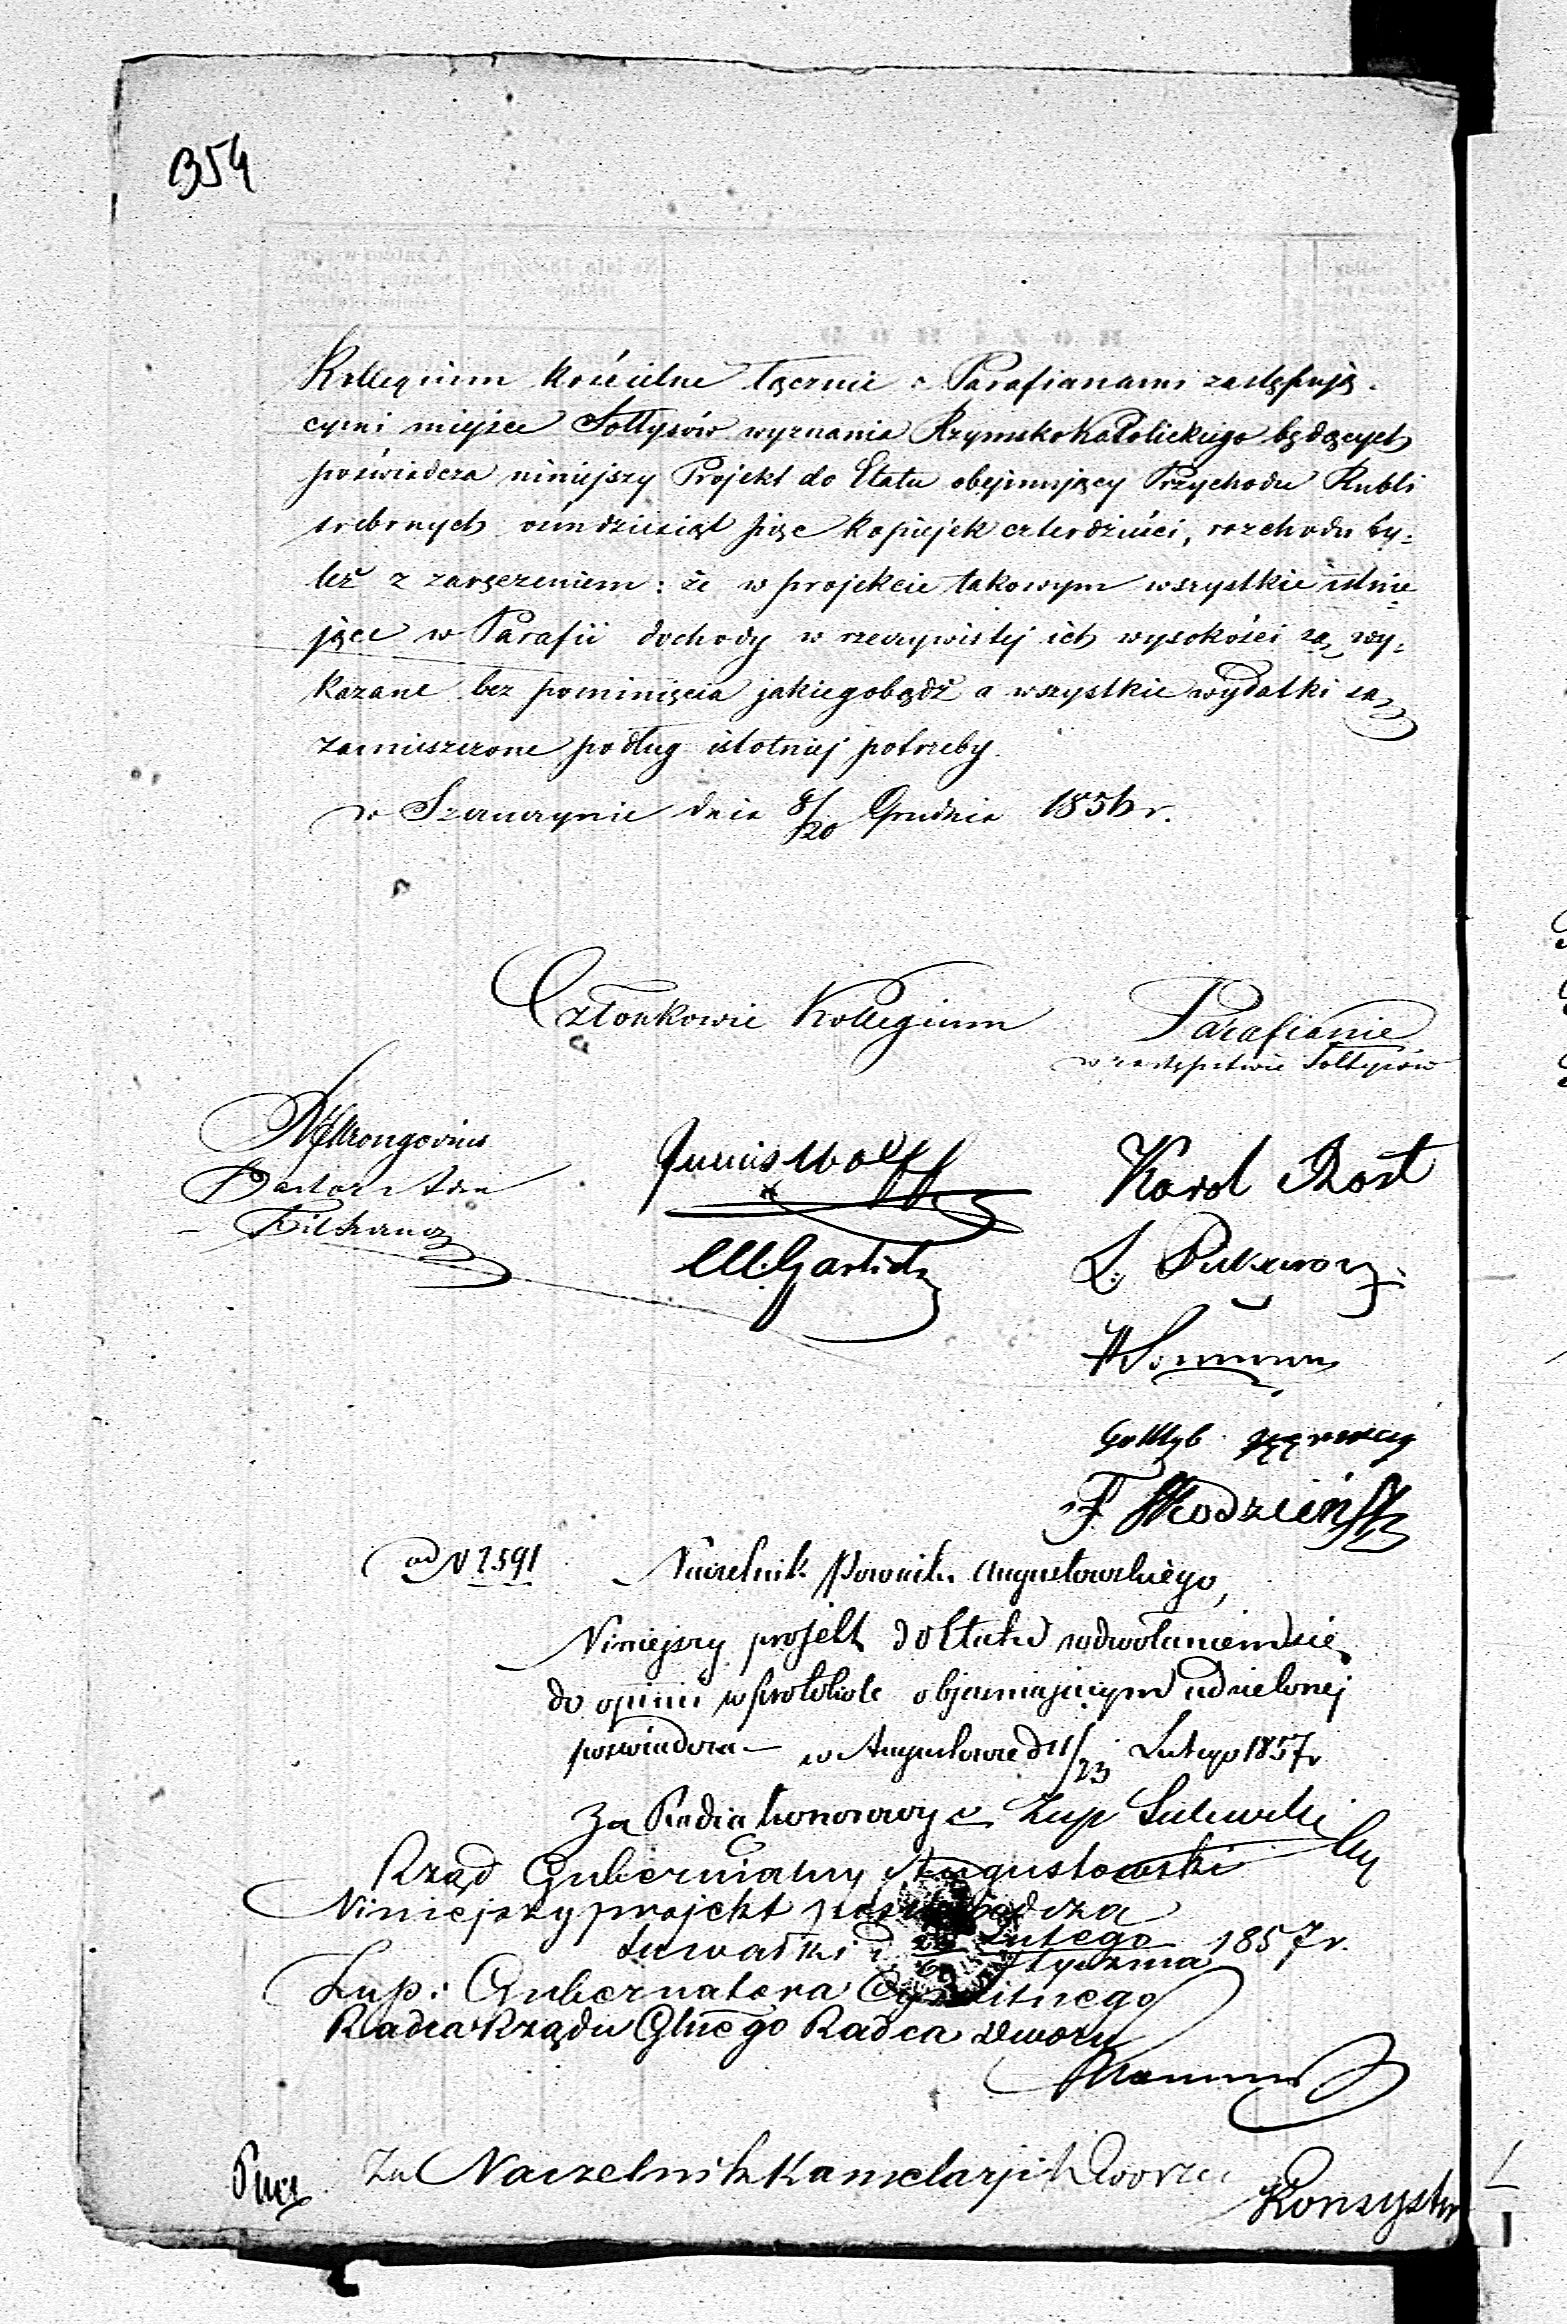 354
Kollegium Kościelne łącznie z Parafianami zastępują-
cymi miejsce Sołtysów wyznania Rzymsko Katolickiego będących
poświadcza niniejszy Projekt do Etatu obejmujący Przychodu Rubli
srebrnych ośmdziesiąt pięć kopiejek czterdzieści, rozchodu ty=
leż z zaręczeniem: że w projekcie takowym wszystkie istnie=
jące w Parafii dochody w rzeczywistej ich wysokości są wy=
kazane bez pominięcia jakiegobądź a wszystkie wydatki są
zamieszczone podług istotnej potrzeby
w Szczuczynie dnia 8/20 Grudnia 1856 r.
Członkowie Kollegium
Parafianie
w zastępstwie Sołtysów
Mrongovius
Pastor Adm
Filszaucz
Julius Wolff
Karol Rost
M. Garlich
L.
Gottlyb
F.
ad N 2591
Naczelnik Powiatu Augustowskiego,
Niniejszy projekt do Etatu z odwołaniem się
do opinii w protokole objaśniającym udzielonej
poświadcza w Augustowie d 11/23 Lutego 1857 r
Za Radca honorowy
Rząd Gubernialny Augustowski
Niniejszy projekt poświadcza
Suwałki d. Lutego 1857 r.
Stycznia
Zup: Gubernatora Cywilnego
Radca Rządu Glnego Radca Dworu
Za Naczelnik Kancelaryi
Konsystor